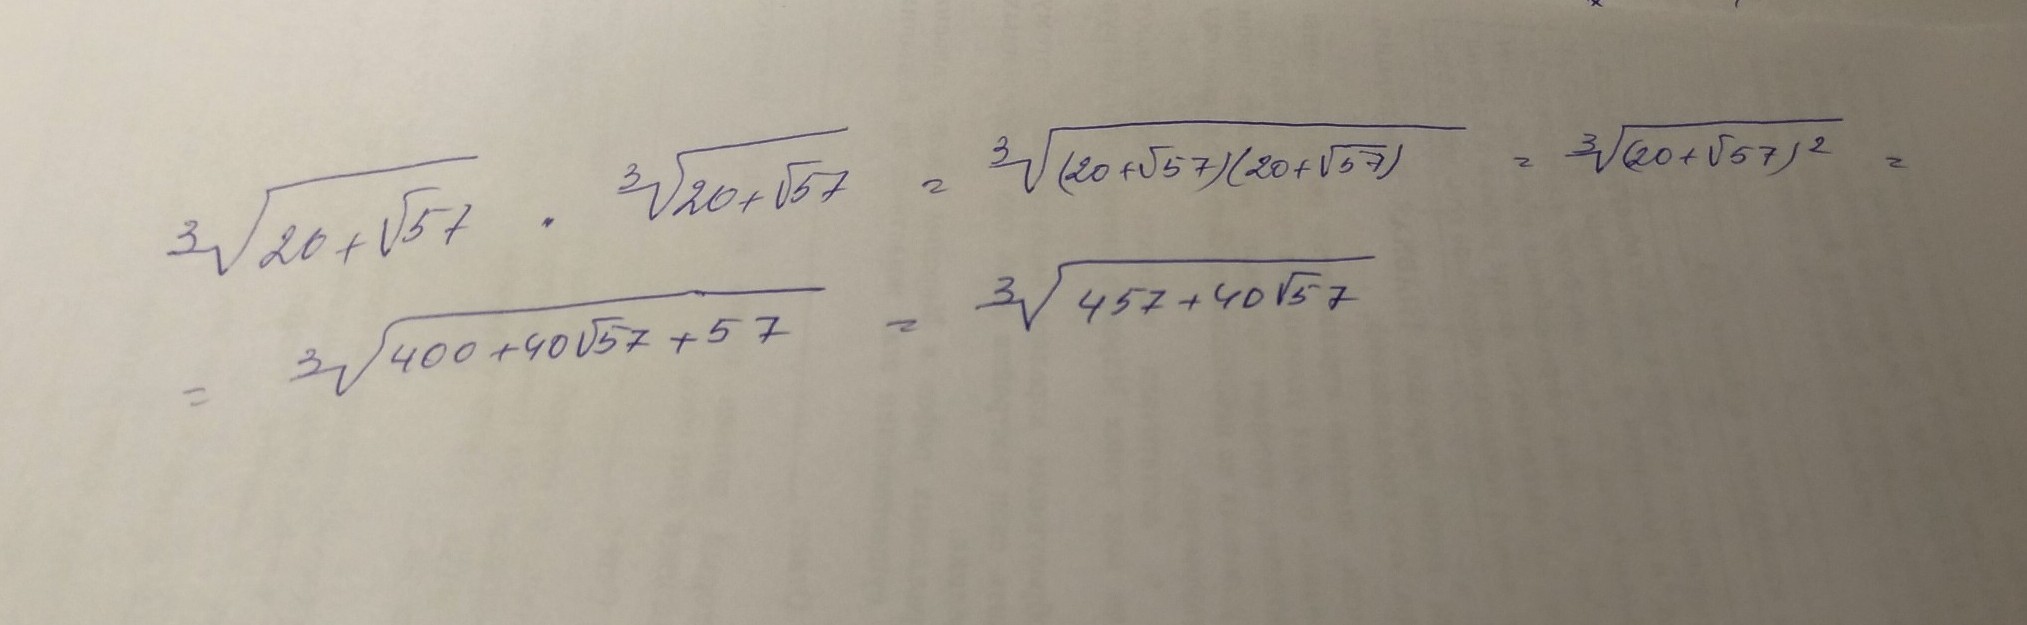 ∛(20+√57) · ∛(20+√57) = ∛((20+√57)(20+√57)) = ∛((20+√57)²) =
= ∛(400+40√57+57) = ∛(457+40√57)